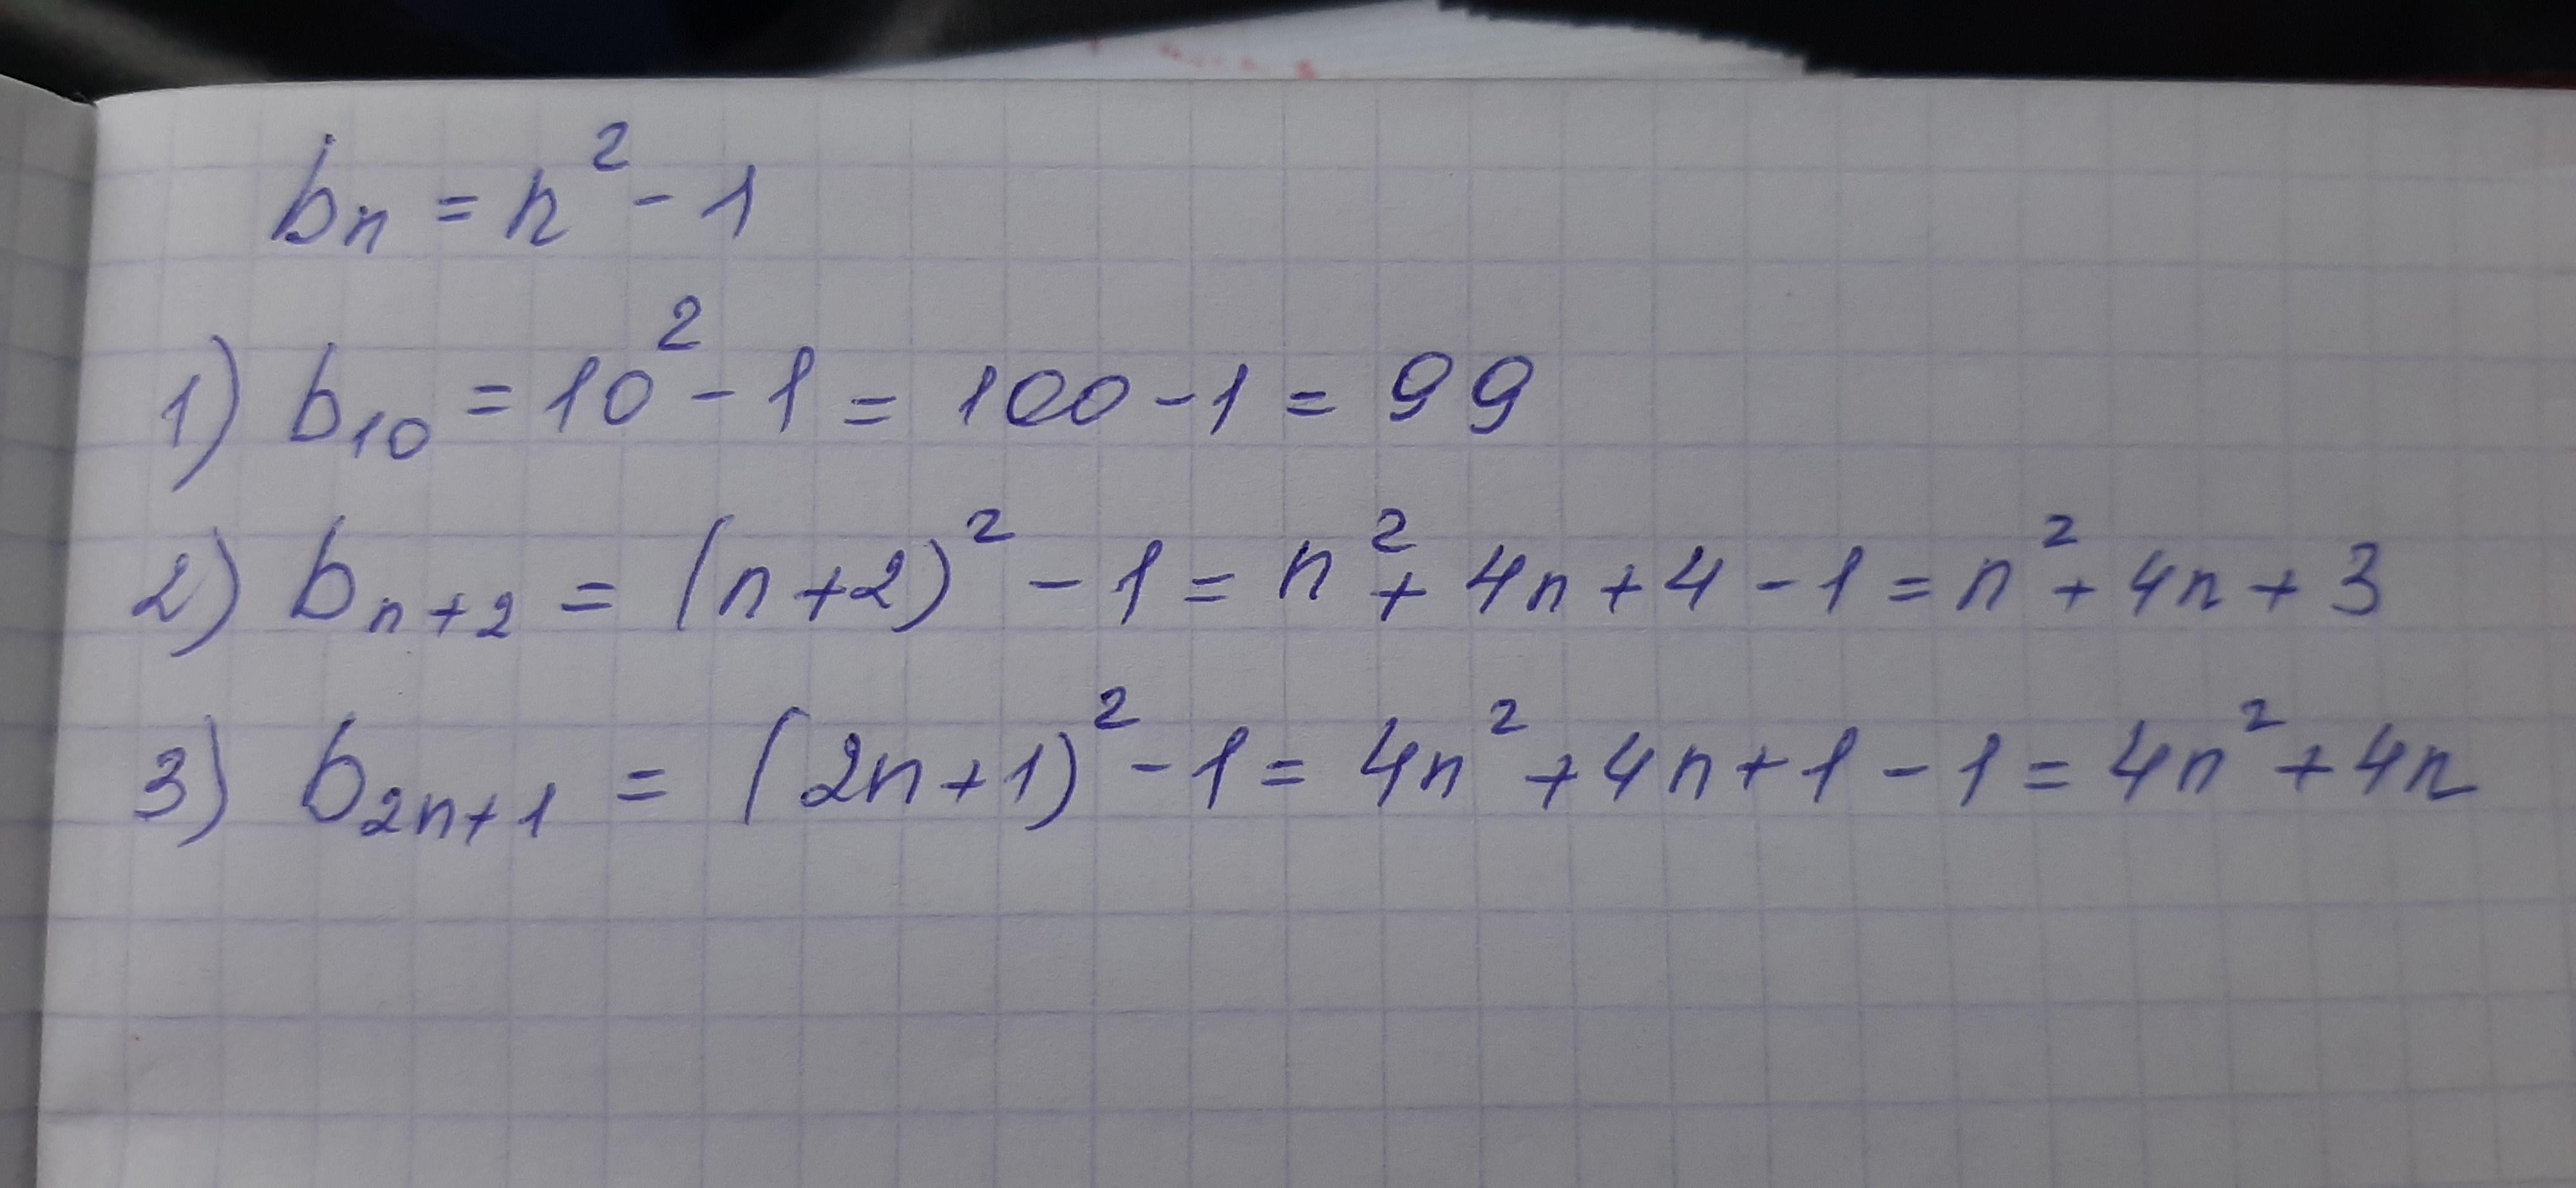 bₙ = n² - 1
1) b₁₀ = 10² - 1 = 100 - 1 = 99
2) bₙ₊₂ = (n+2)² - 1 = n² + 4n + 4 - 1 = n² + 4n + 3
3) b₂ₙ₊₁ = (2n+1)² - 1 = 4n² + 4n + 1 - 1 = 4n² + 4n